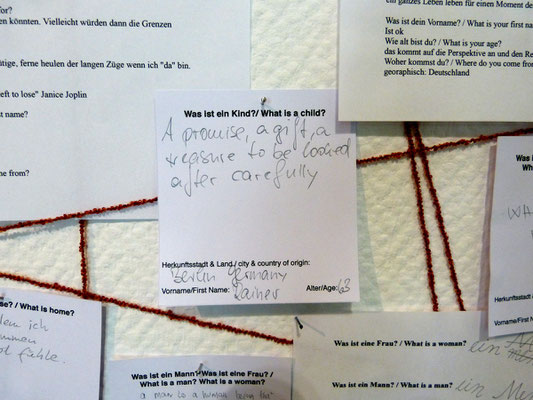 for?
en könnten. Vielleicht würden dann die Grenzen
ütige, ferne heulen der langen Züge wenn ich "da" bin.
eft to lose" Janice Joplin
st name?
ne from?
ein ganzes Leben leben für einen Moment de
Was ist dein Vorname? / What is your first na
Ist ok
Wie alt bist du? / What is your age?
das kommt auf die Perspektive an und den Re
Woher kommst du? / Where do you come from
georaphisch: Deutschland
Was ist ein Kind?/ What is a child?
A promise, a gift, a
treasure to be looked
after carefully
Herkunftsstadt & Land / city & country of origin:
Berlin Germany
Vorname/First Name: Rainer Alter/Age: 63
Was is
Wh
WA
Herkunftsstadt &
Vorname/First N
se? / What is home?
dem ich
ommen
ol fühle.
Was ist ein Mann? Was ist eine Frau? /
What is a man? What is a woman?
a man is a human being that
Was ist eine Frau? / What is a woman? ein
Was ist ein Mann? / What is a man? ein Me